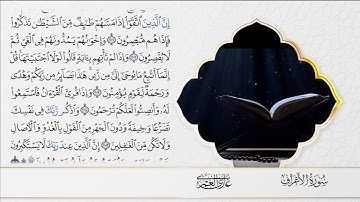 إِنَّ ٱلَّذِينَ ٱتَّقَوۡاْ إِذَا مَسَّهُمۡ طَٰٓئِفٞ مِّنَ ٱلشَّيۡطَٰنِ تَذَكَّرُواْ
فَإِذَا هُم مُّبۡصِرُونَ ۝ وَإِخۡوَٰنُهُمۡ يَمُدُّونَهُمۡ فِي ٱلۡغَيِّ ثُمَّ
لَا يُقۡصِرُونَ ۝ وَإِذَا لَمۡ تَأۡتِهِم بِـَٔايَةٖ قَالُواْ لَوۡلَا ٱجۡتَبَيۡتَهَاۚ قُلۡ
إِنَّمَآ أَتَّبِعُ مَا يُوحَىٰٓ إِلَيَّ مِن رَّبِّيۚ هَٰذَا بَصَآئِرُ مِن رَّبِّكُمۡ وَهُدٗى
وَرَحۡمَةٞ لِّقَوۡمٖ يُؤۡمِنُونَ ۝ وَإِذَا قُرِئَ ٱلۡقُرۡءَانُ فَٱسۡتَمِعُواْ
لَهُۥ وَأَنصِتُواْ لَعَلَّكُمۡ تُرۡحَمُونَ ۝ وَٱذۡكُر رَّبَّكَ فِي نَفۡسِكَ
تَضَرُّعٗا وَخِيفَةٗ وَدُونَ ٱلۡجَهۡرِ مِنَ ٱلۡقَوۡلِ بِٱلۡغُدُوِّ وَٱلۡأٓصَالِ
وَلَا تَكُن مِّنَ ٱلۡغَٰفِلِينَ ۝ إِنَّ ٱلَّذِينَ عِندَ رَبِّكَ لَا يَسۡتَكۡبِرُونَ
سُورَةُ الأَعْرَافِ